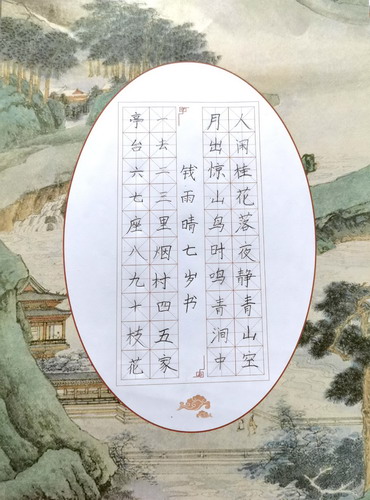 人闲桂花落夜静青山空
月出惊山鸟时鸣青涧中
钱雨晴七岁书
一去二三里烟村四五家
亭台六七座八九十枝花